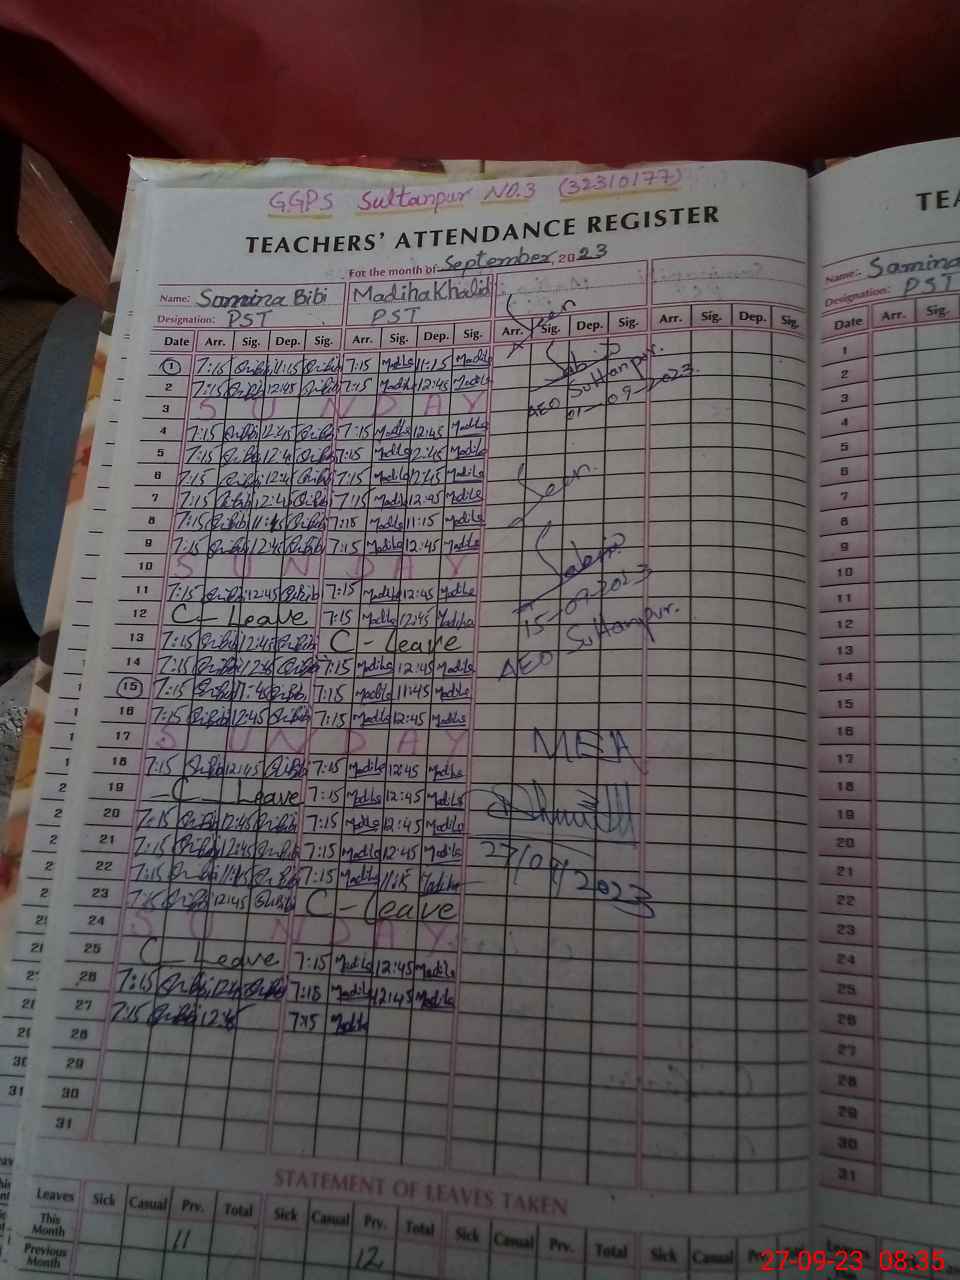 GGPS Sultanpur NO.3 (32310177)
TEACHERS' ATTENDANCE REGISTER
For the month of September, 2023
Name: Samina Bibi Madiha Khalid
Designation: PST PST
Date Arr. Sig. Dep. Sig. Arr. Sig. Dep. Sig. Arr. Sig. Dep. Sig. Arr. Sig. Dep. Sig.
1 7:15 11:15 7:15 Madiha 11:15 Madiha
2 7:15 12:45 7:15 Madiha 12:45 Madiha
AEO Sultanpur.
01-09-2023
3 SUNDAY
4 7:15 12:45 7:15 Madiha 12:45 Madiha
5 7:15 12:45 7:15 Madiha 12:45 Madiha
6 7:15 12:45 7:15 Madiha 12:45 Madiha
7 7:15 12:45 7:15 Madiha 12:45 Madiha
8 7:15 11:15 7:15 Madiha 11:15 Madiha
9 7:15 12:45 7:15 Madiha 12:45 Madiha
10 SUNDAY
11 7:15 12:45 7:15 Madiha 12:45 Madiha
15-09-2023
12 C-Leave 7:15 Madiha 12:45 Madiha
AEO Sultanpur.
13 7:15 12:45 C-Leave
14 7:15 12:45 7:15 Madiha 12:45 Madiha
15 7:15 7:15 Madiha 11:45 Madiha
16 7:15 12:45 7:15 Madiha 12:45 Madiha
17 SUNDAY MEA
18 7:15 12:45 7:15 Madiha 12:45 Madiha
19 C-Leave 7:15 Madiha 12:45 Madiha
20 7:15 12:45 7:15 Madiha 12:45 Madiha
21 7:15 12:45 7:15 Madiha 12:45 Madiha
27/09/2023
22 7:15 7:15 Madiha 11:15 Madiha
23 7:15 12:45 C-Leave
24 SUNDAY
25 C-Leave 7:15 Madiha 12:45 Madiha
26 7:15 12:45 7:15 Madiha 12:45 Madiha
27 7:15 12:45 7:15 Madiha
28
29
30
31
STATEMENT OF LEAVES TAKEN
Leaves Sick Casual Prv. Total Sick Casual Prv. Total Sick Casual Prv. Total Sick Casual Prv.
This Month
11 12
Previous Month
TEA
Name: Samina
Designation: PST
Date Arr. Sig.
1
2
3
4
5
6
7
8
9
10
11
12
13
14
15
16
17
18
19
20
21
22
23
24
25
26
27
28
29
30
31
Leaves
27-09-23 08:35